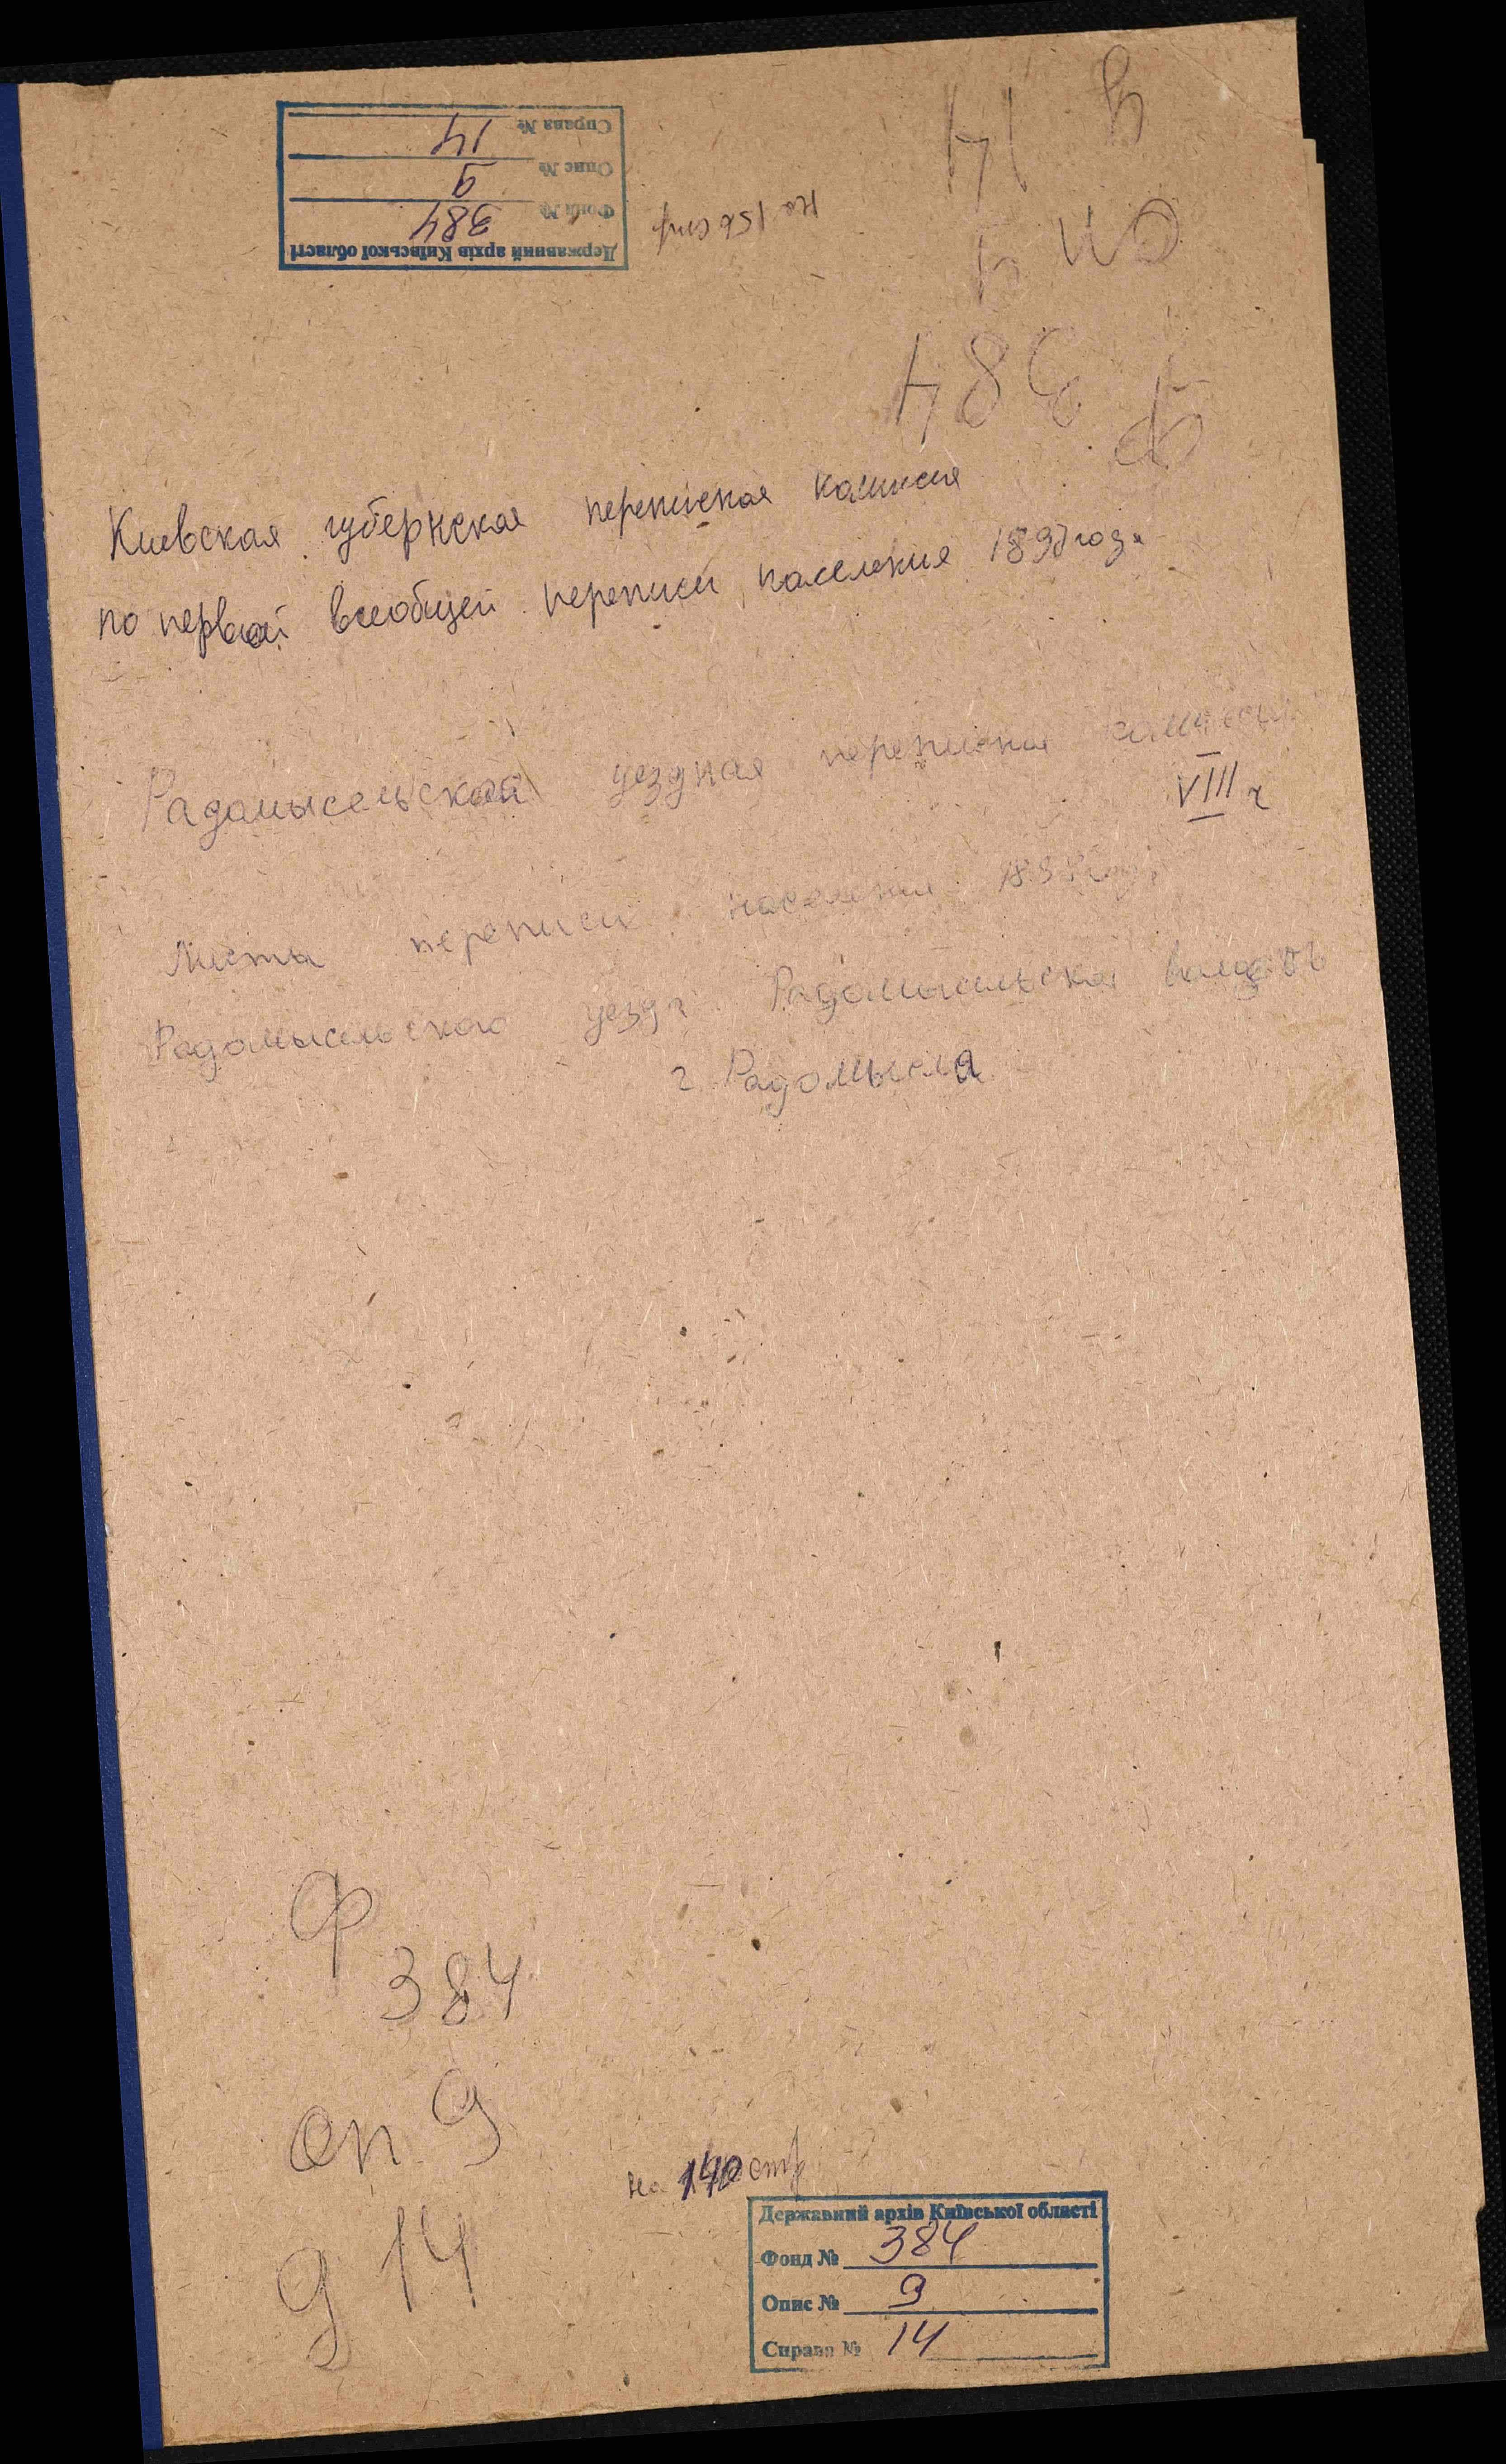 Справа № 14
Опис № 9
Фонд № 384
Державний архів Київської області
на стр
д
14
оп 9
384
ф
Киевская губернская переписная комисия
по первой всеобщей переписи населения 1897 года
Радомысельская уездная переписная комисия
VIII ч
Листы переписи населения 1897 года
Радомысельского уезда Радомысельская волость
г. Радомысля
Ф
384
оп 9
д 14
на 140 стр
Державний архів Київської області
Фонд № 384
Опис № 9
Справа № 14